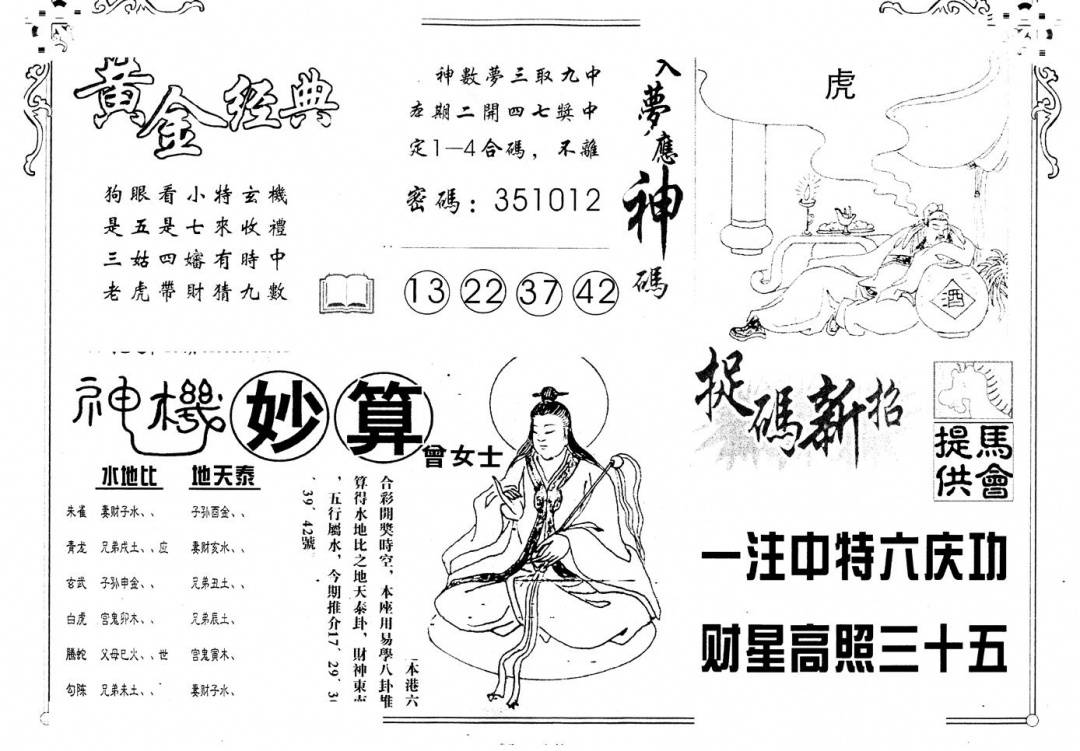 黃金經典
狗眼看小特玄機
是五是七來收禮
三姑四嬸有時中
老虎帶財猜九數
神數夢三取九中
期二開四七獎中
定1—4合碼，不離
密碼：351012
13 22 37 42
入夢應神碼
虎
酒
神機妙算
曾女士
水地比 地天泰
朱雀 妻财子水、、 子孙酉金、、
青龙 兄弟戌土、、应 妻财亥水、、
玄武 子孙申金、、 兄弟丑土、、
白虎 官鬼卯木、、 兄弟辰土、
螣蛇 父母巳火、、世 官鬼寅木、
勾陈 兄弟未土、、 妻财子水、
本港六
合彩開獎時空，本座用易學八卦推
算得水地比之地天泰卦，財神東
，五行屬水，今期推介17、29、3
、39、42號
捉碼新招
馬會提供
一注中特六庆功
财星高照三十五